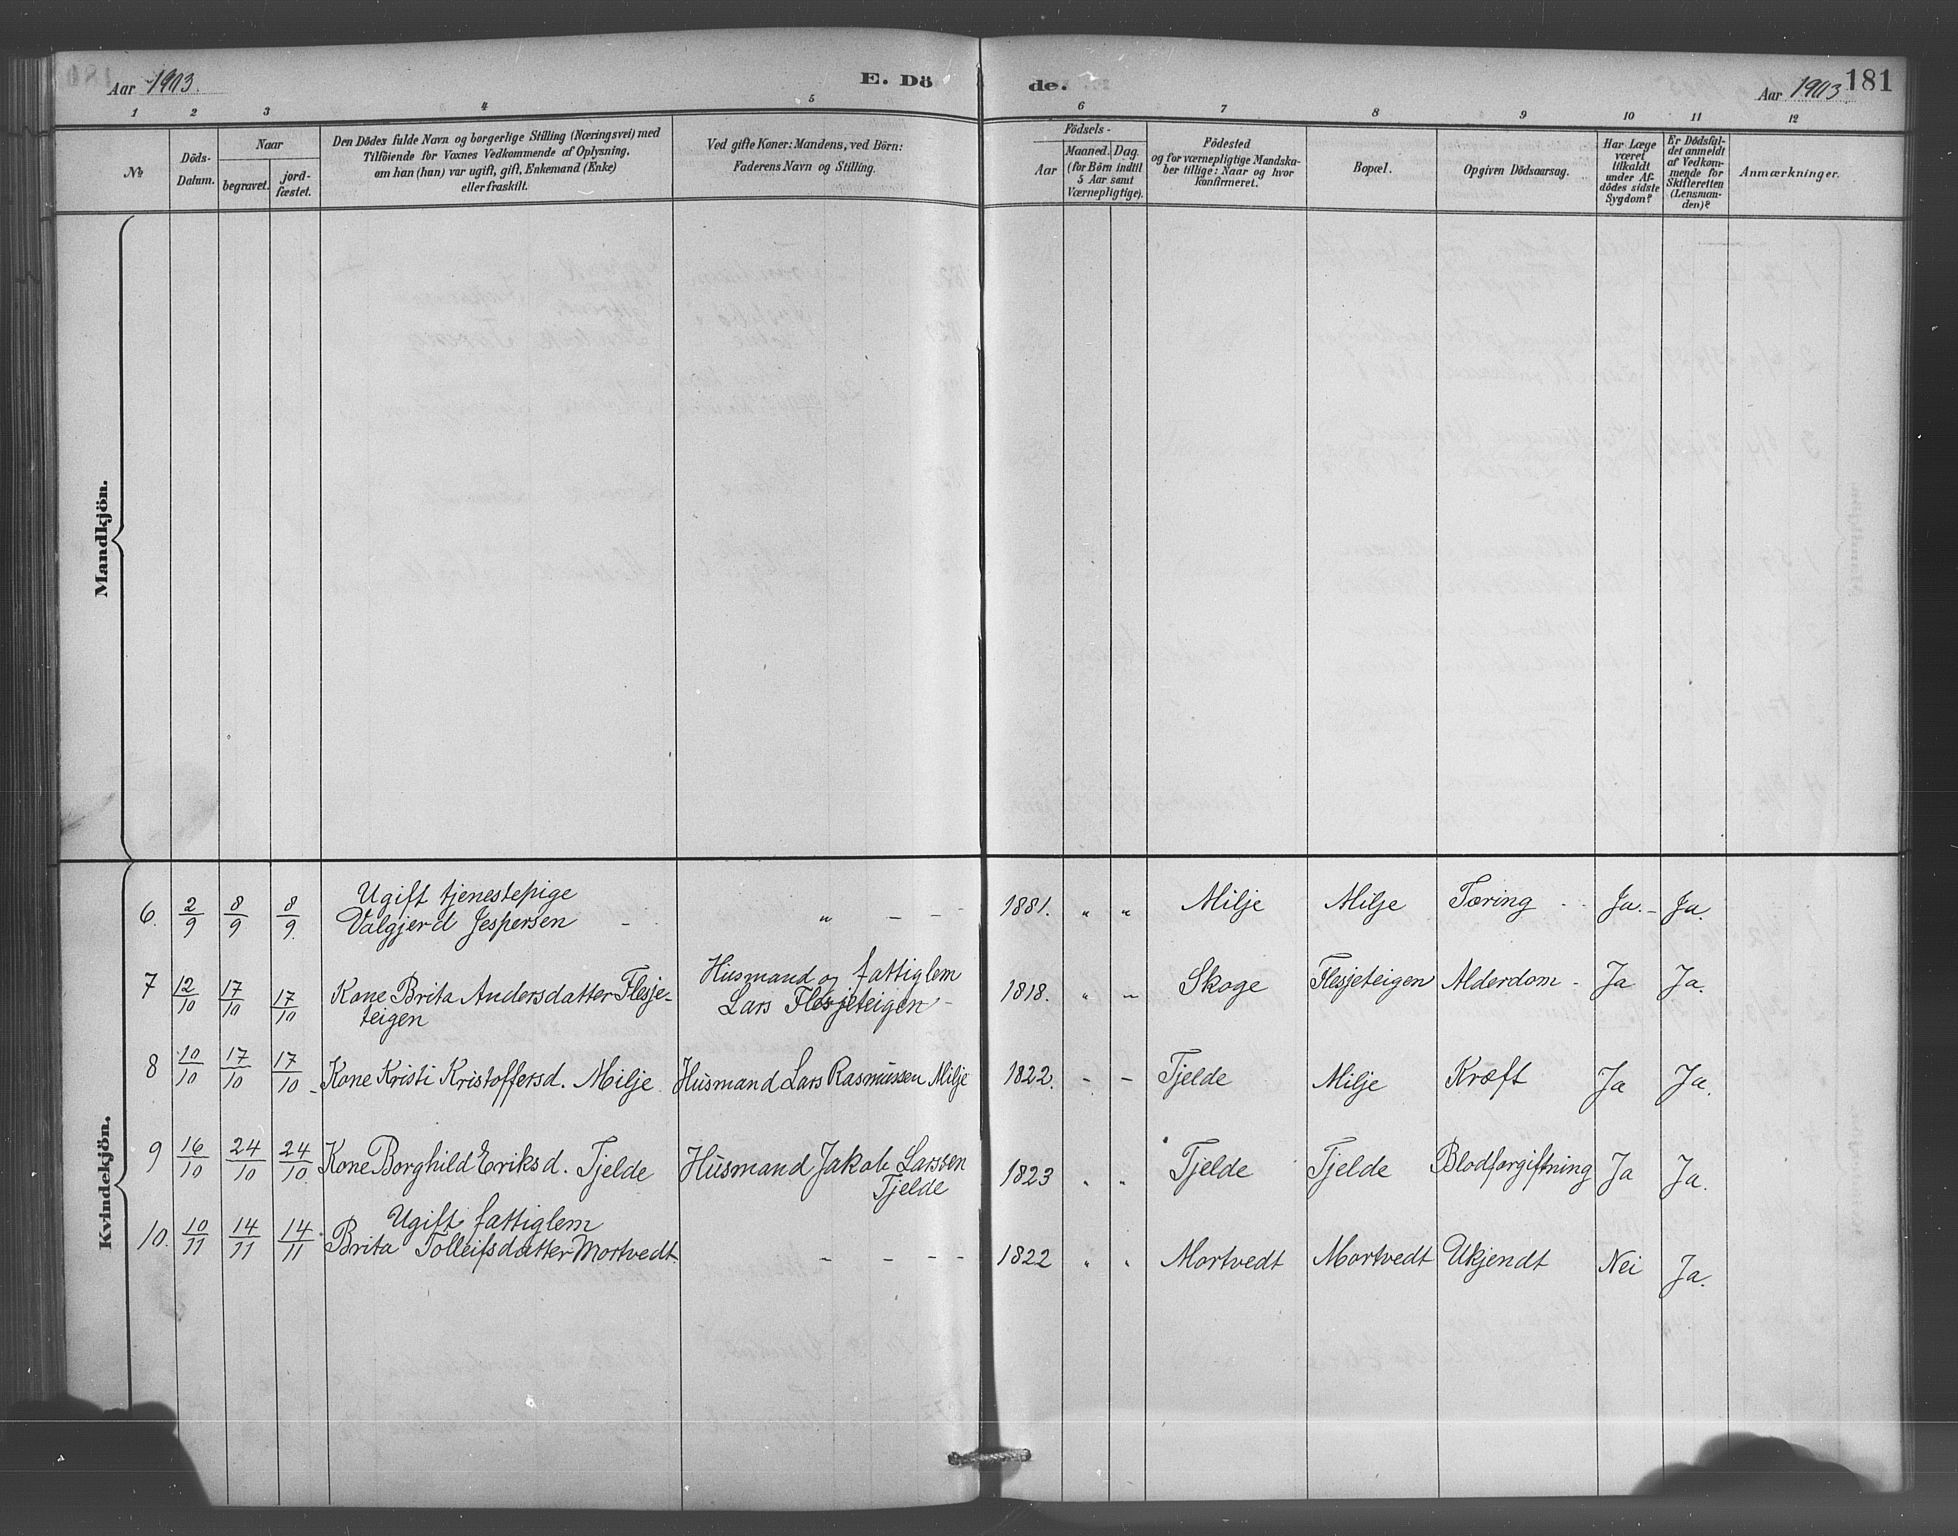 Aar 1903.
E. Dö
de.
Aar 1903
181
1 2 3 4 5 6 7 8 9 10 11 12
No
Döds-
Datum.
Naar
begravet.
jord-
fæstet.
Den Dödes fulde Navn og borgerlige Stilling (Næringsvei) med
Tilföiende for Voxnes Vedkommende af Oplysning,
om han (hun) var ugift, gift, Enkemand (Enke)
eller fraskilt.
Ved gifte Koner: Mandens, ved Börn:
Faderens Navn og Stilling.
Födsels-
Aar
Maaned. Dag.
(for Börn indtil
5 Aar samt
Værnepligtige).
Födested
og for værnepligtige Mandska-
ber tillige: Naar og hvor
konfirmeret.
Bopæl.
Opgiven Dödsaarsag.
Har Læge
været
tilkaldt
under Af-
dödes sidste
Sygdom?
Er Dödsfal-
det anmeldt
af Vedkom-
mende for
Skifteretten
(Lensman-
den)?
Anmærkninger.
Mandkjön.
Kvindekjön.
6. 2/9 8/9 8/9. Ugift tjenestepige
Valgjerd Jespersen - „ - - - 1881. „ „ Milje Milje Tæring Ja. - Ja.
7 12/10 17/10 17/10 Kone Brita Andersdatter Flesje-
teigen
Husmand og fattiglem
Lars Flesjeteigen - 1818. „ „ Skoge Flesjeteigen Alderdom - Ja Ja.
8 10/10 17/10 17/10 Kone Kristi Kristoffersd. Milje. Husmand Lars Rasmussen Milje 1822. - - Tjelde Milje Kræft Ja Ja.
9 16/10 24/10 24/10 Kone Borghild Eriksd. Tjelde Husmand Jakob Larssen
Tjelde 1823 „ „ Tjelde Tjelde Blodforgiftning Ja Ja.
10. 10/11 14/11 14/11 Ugift fattiglem
Brita Tolleifsdatter Mortvedt. - - - - 1822 „ „ Mortvedt Mortvedt Ukjendt Nei Ja.